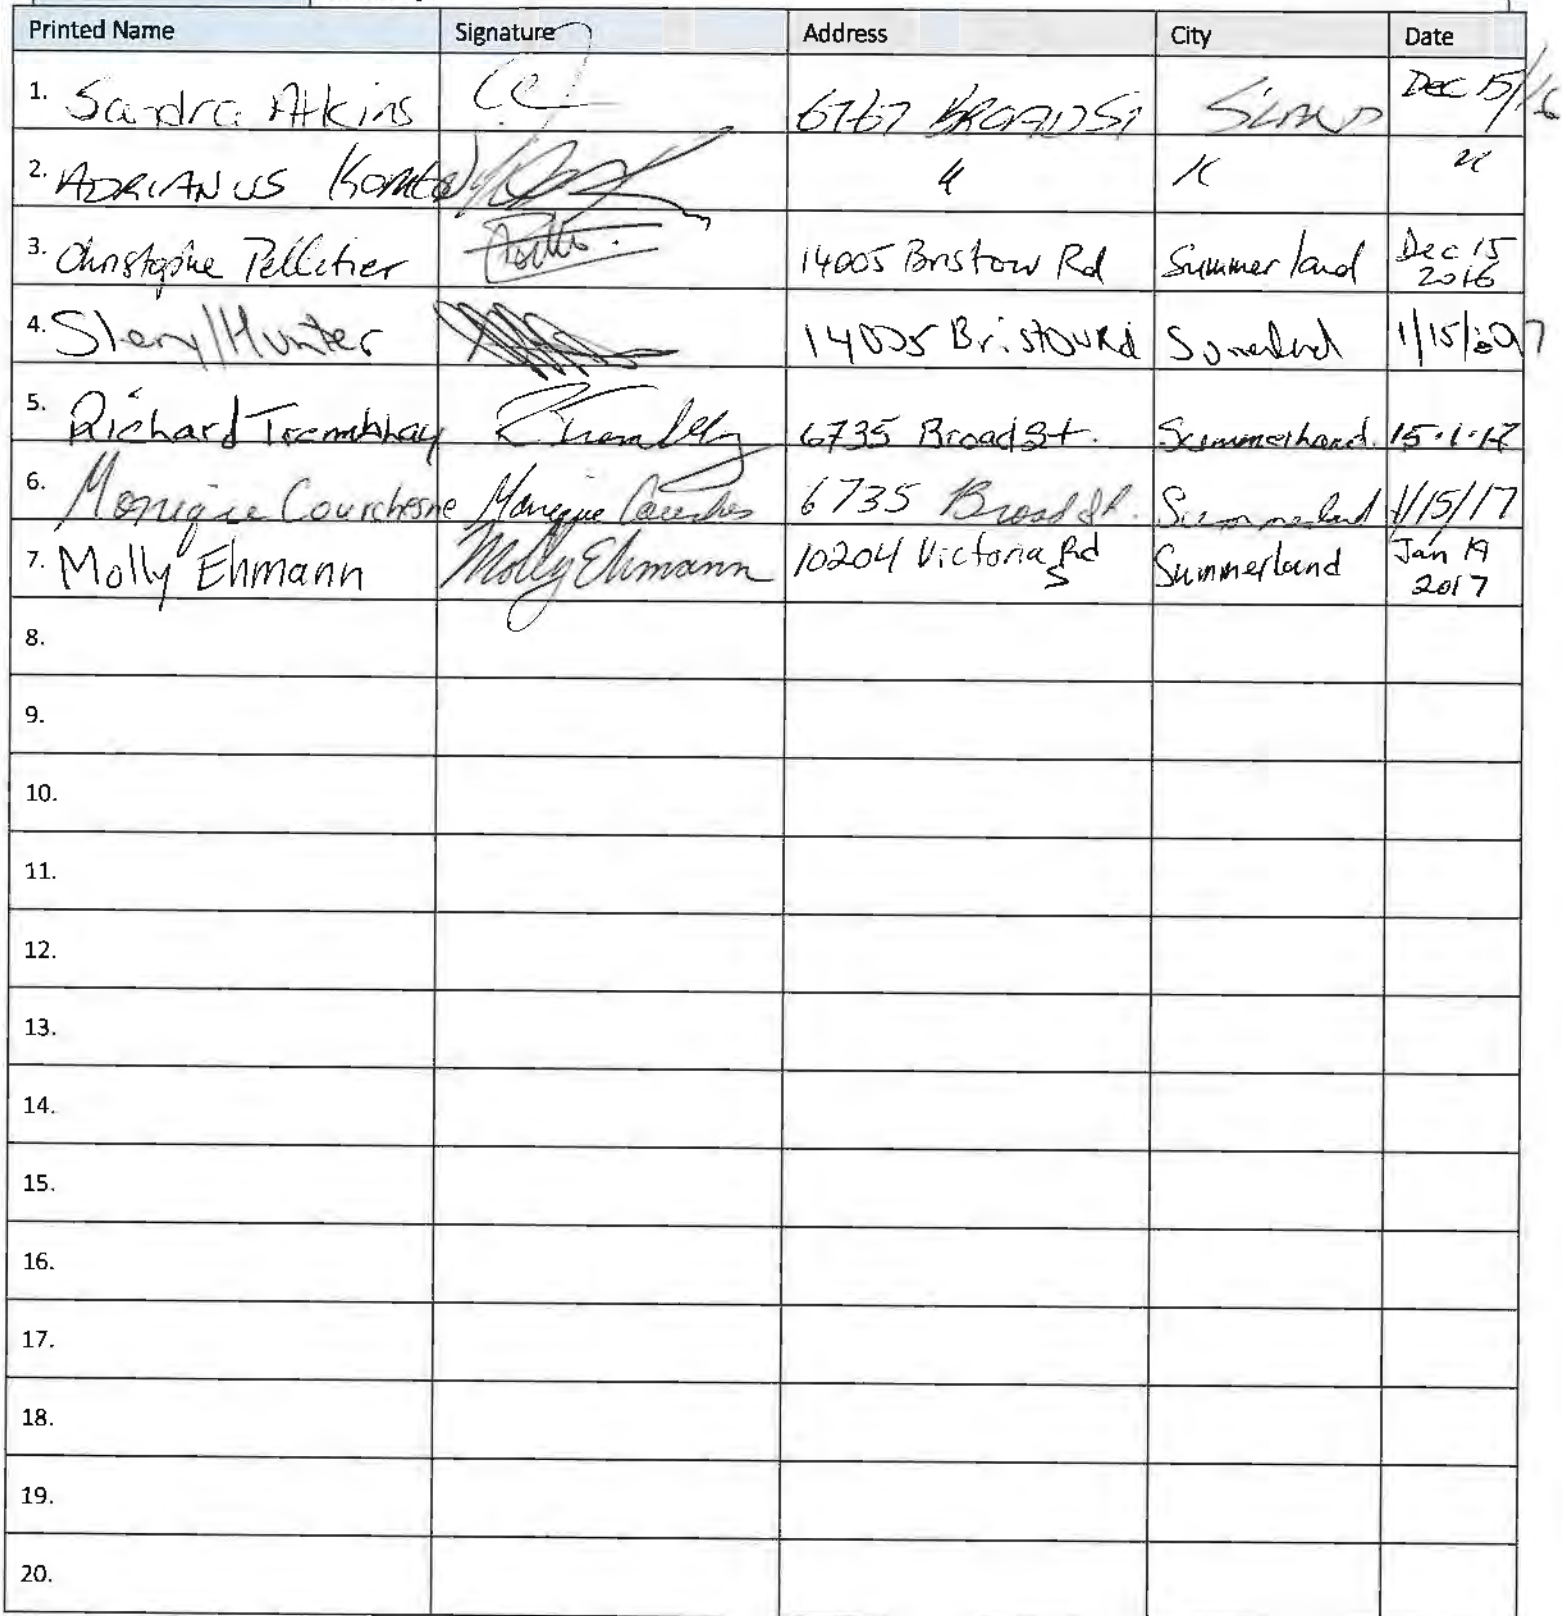 Printed Name Signature Address City Date
1. Sandra Atkins 6767 BROAD St S'LAND Dec 15/16
2. ADRIANUS " " "
3. Christophe Pelletier 14005 Bristow Rd Summerland Dec 15 2016
4. Sheryl Hunter 14005 Bristow Rd Summerland 1/15/2017
5. Richard Tremblay 6735 Broad St. Summerland 15.1.17
6. Monique Courchesne Monique 6735 Broad St. Summerland 1/15/17
7. Molly Ehmann Molly Ehmann 10204 Victoria Rd S Summerland Jan 19 2017
8.
9.
10.
11.
12.
13.
14.
15.
16.
17.
18.
19.
20.